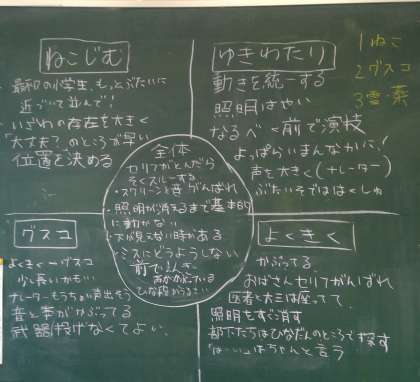 ねこじむ
最初の小学生、もっとぶたいに
近づいて並んで!
いざわの存在を大きく
「大丈夫?」のところが早い
位置を決める
ゆきわたり
動きを統一する
照明はやい
なるべく前で演技
よっぱらいまんなかに!
声を大きく(ナレーター)
ぶたいそでははくしゅ
1ねこ
2グスコ
3雪・薬
全体
セリフがとんだら
そくスルーする
・スクリーンと音がんばれ
・照明が消えるまで基本的
に動かない
・スが見えない時がある
・ミスにどうようしない
前で
グスコ
よくきく→グスコ
少し長いかも…
ナレーターもうちょい声出そう
音と声がかぶってる
武器投げなくてよい。
よくきく
かぶってる
おばさんセリフがんばれ
医者と大三は座ってて。
照明もすぐ消す
部下たちはひなだんのところで探す
「はーい」はちゃんと言う